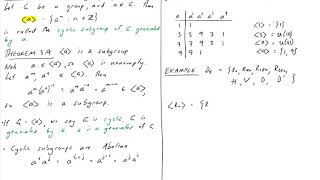 Let G be a group, and a ∈ G. Then
⟨a⟩ = {aⁿ : n ∈ Z}
is called the cyclic subgroup of G generated
by a.
THEOREM 3.4 ⟨a⟩ is a subgroup
Noh a ∈ ⟨a⟩, so ⟨a⟩ is nonempty.
Let aᵐ, aⁿ ∈ ⟨a⟩. Then
⟨a⟩ is a subgroup.
• If G = ⟨a⟩, we say G is cyclic, G is
generated by a, a is a generator of G.
• Cyclic subgroups are Abelian
aⁱaʲ = aⁱ⁺ʲ = aʲ⁺ⁱ = aʲaⁱ
a a² a³ a⁴
1 1
3 9 7 1
7 9 3 1
9 1
⟨1⟩ = {1}
⟨3⟩ = U(10)
⟨7⟩ = U(10)
⟨9⟩ = {1, 9}
EXAMPLE D₄ = {R₀, R₉₀, R₁₈₀, R₂₇₀,
H, V, D, D'}
⟨R₀⟩ = {R